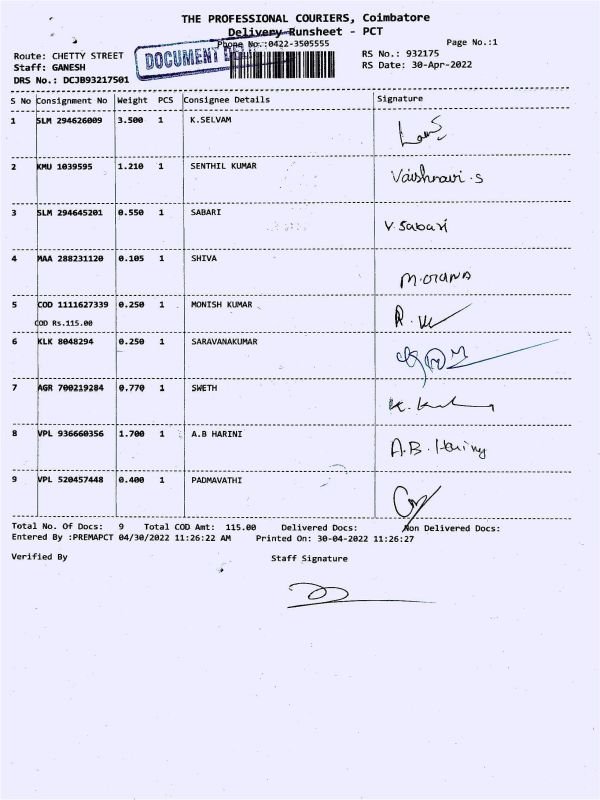 THE PROFESSIONAL COURIERS, Coimbatore
Delivery Runsheet - PCT
Phone No.:0422-3505555 Page No.:1
Route: CHETTY STREET RS No.: 932175
Staff: GANESH RS Date: 30-Apr-2022
DOCUMENT
DRS No.: DCJB93217501
S No Consignment No Weight PCS Consignee Details Signature
1 SLM 294626009 3.500 1 K.SELVAM
2 KMU 1039595 1.210 1 SENTHIL KUMAR Vaishnavi.S
3 SLM 294645201 0.550 1 SABARI V.Sabari
4 MAA 288231120 0.105 1 SHIVA
5 COD 1111627339 0.250 1 MONISH KUMAR
COD Rs.115.00
6 KLK 8048294 0.250 1 SARAVANAKUMAR
7 AGR 700219284 0.770 1 SWETH
8 VPL 936660356 1.700 1 A.B HARINI A.B.Hariny
9 VPL 520457448 0.400 1 PADMAVATHI
Total No. Of Docs: 9 Total COD Amt: 115.00 Delivered Docs: Non Delivered Docs:
Entered By :PREMAPCT 04/30/2022 11:26:22 AM Printed On: 30-04-2022 11:26:27
Verified By Staff Signature